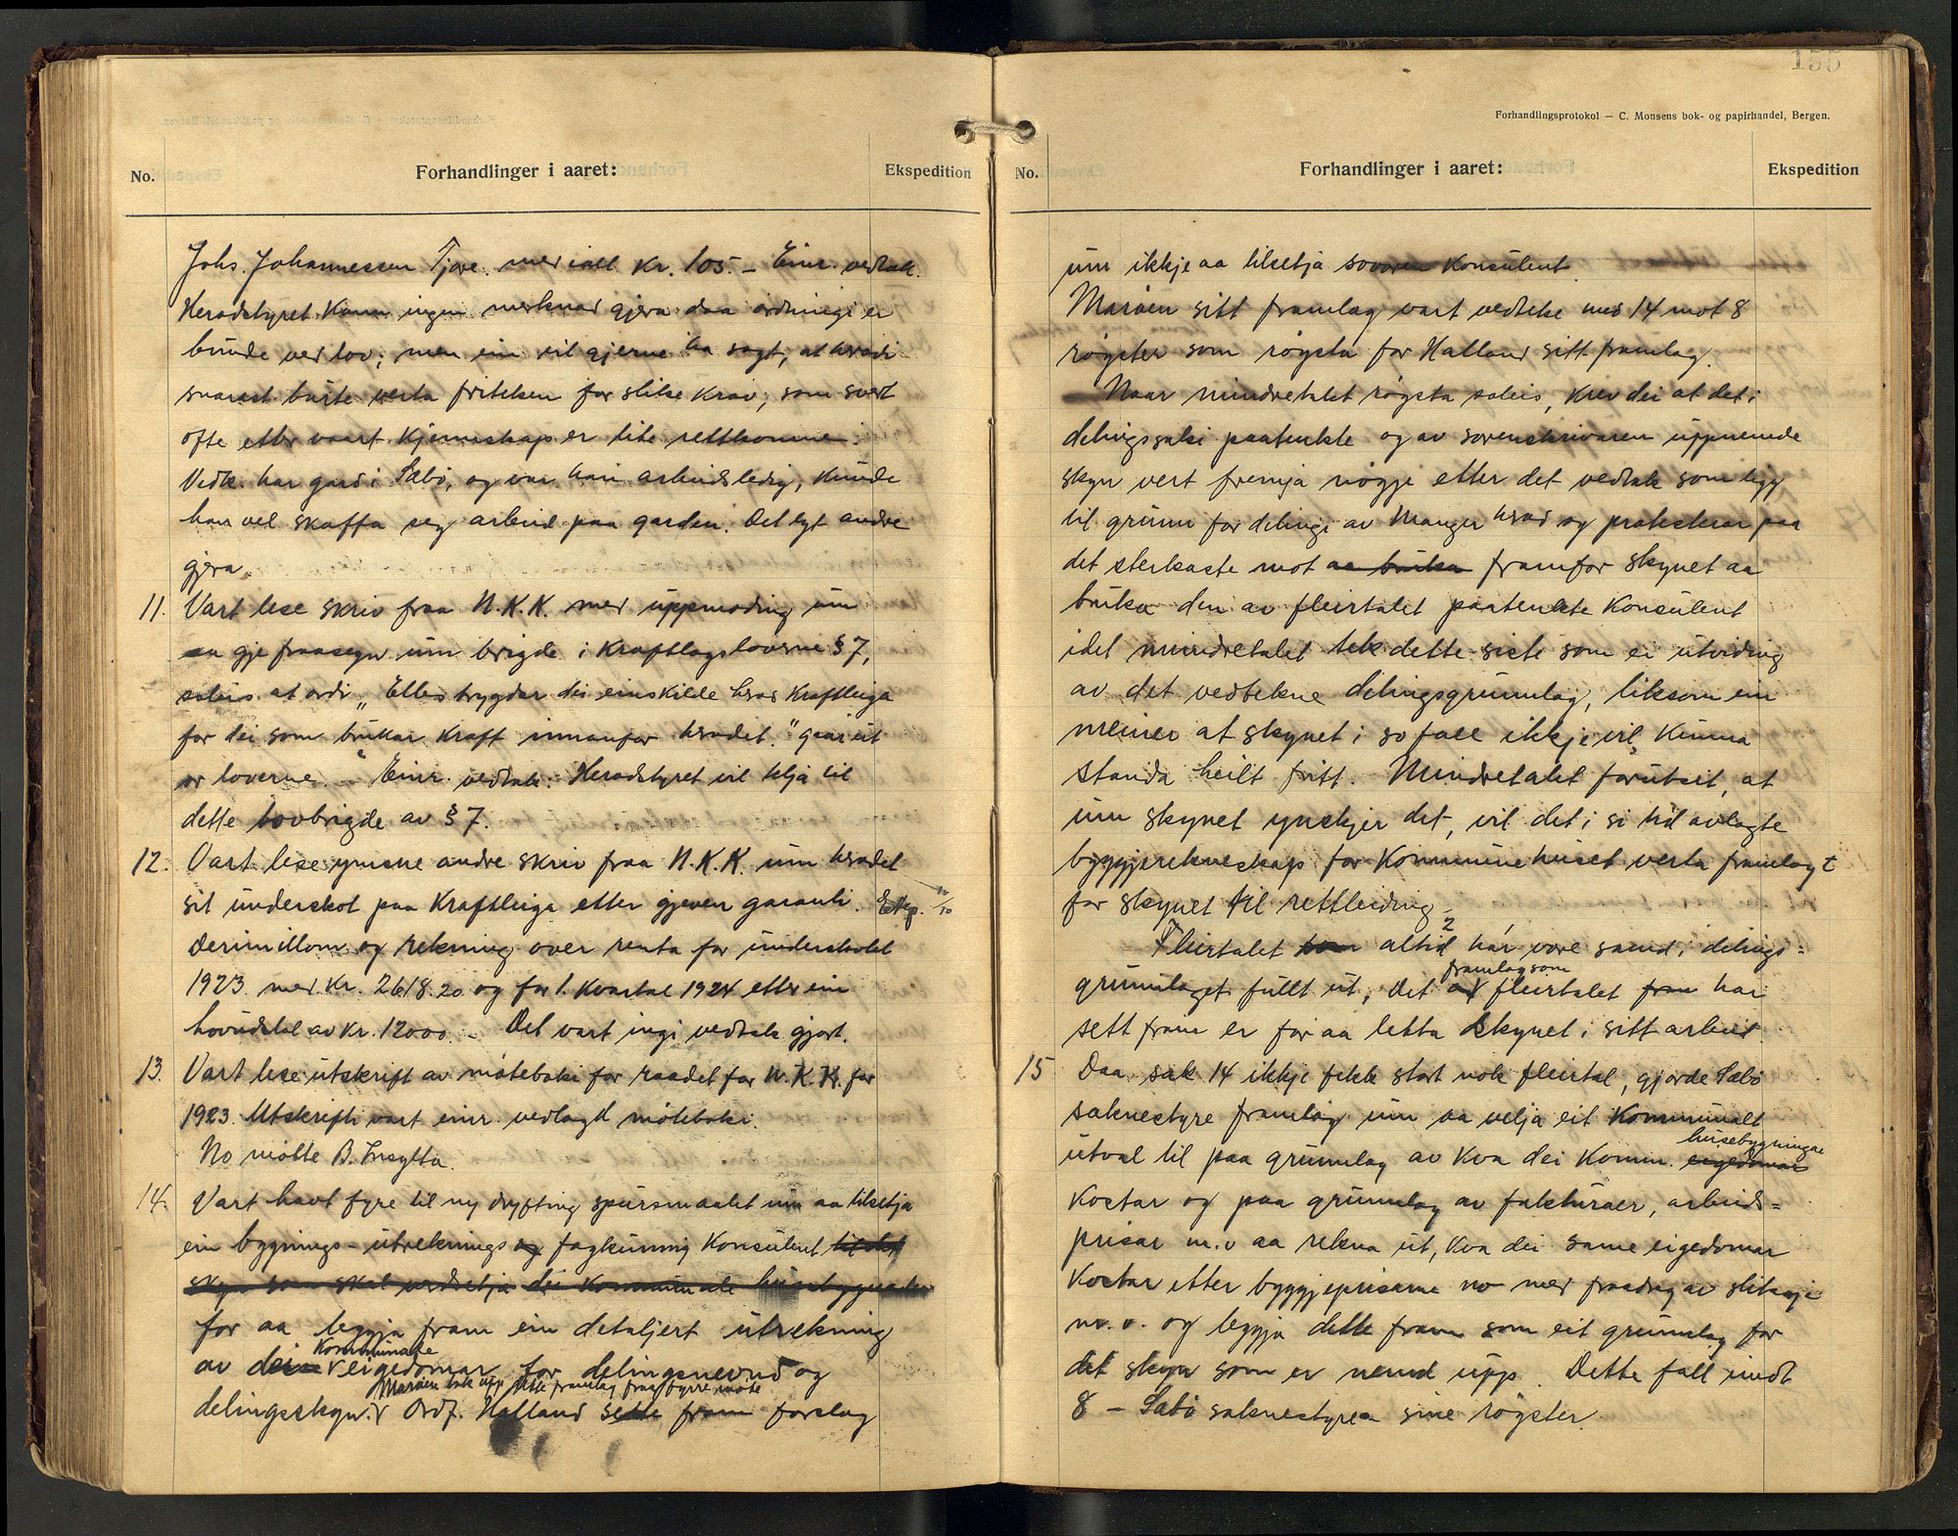 No. Forhandlinger i aaret: Ekspedition
Johs. Johannessen Tjore med ialt Kr. 105.- Einr. vedtak.
Heradstyret kann ingen merknad gjera daa ordningi er
bunde ved lov; men ein vil gjerne ha sagt, at heradi
snarast burte verta friteken for slike krav, som svært
ofte etter vaart kjennskap er lite rettkomne.
Vedk. har gard i Sæbø, og var han arbeidsledig, kunde
han vel skaffa seg arbeid paa garden. Det lyt andre
gjera.
11. Vart lese skriv fraa N.K.K. med uppmoding um
aa gje fraasegn um brigde i Kraftlagsloverne § 7,
soleis at ordi „Elles trygdar dei einskilde herad kraftleiga
for dei som brukar kraft innanfor heradet." gaar ut
or loverne. Einr. vedtak: Heradstyret vil telja til
dette lovbrigde av § 7.
12. Vart lese ymsne andre skriv fraa N.K.K. um heradet
sit underskot paa Kraftleiga etter gjeven garanti. Eksp.
derimillom og rekning over renta for underskotet
1923 med Kr. 2618.20 og for 1. kvartal 1924 etter ein
hovudstol av Kr. 12000.- Det vart ingi vedtak gjort.
13. Vart lese utskrift av møteboki for raadet for N.K.K. for
1923. Utskrifti vart einr. vedlagd møteboki.
No møtte B. Træytta.
14. Vart havt fyre til ny dryfting spursmaalet um aa tilsetja
ein bygnings- utreknings og fagkunnig konsulent til det
skyn som skal verdsetja dei kommunale husebygnader
for aa leggja fram ein detaljert utrekning
kommunale
av dei eigedomar for delingsnevnd og
Marøen tok upp sitt framlag fraa fyrre møte
delingsskyn. Ordf. Halland sette fram forslag
155
Forhandlingsprotokol — C. Monsens bok- og papirhandel, Bergen.
No. Forhandlinger i aaret: Ekspedition
um ikkje aa tilsetja sovoren konsulent.
Marøen sitt framlag vart vedteke med 14 mot 8
røyster som røysta for Halland sitt framlag.
Naar mindretalet røysta soleis, krev dei at det i
delingssaki paatenkte og av sorenskrivaren uppnemde
skyn vert fremja nøgje etter det vedtak som ligg
til grunn for delingi av Manger herad og protesterar paa
det sterkaste mot aa bruka framfor skynet aa
bruka den av fleirtalet paatenkte konsulent
idet mindretalet tek dette siste som ei utviding
av det vedtekne delingsgrunnlag, liksom ein
meiner at skynet i so fall ikkje vil kunna
standa heilt fritt. Mindretalet forutset, at
um skynet ynskjer det, vil det i si tid avlagte
byggjerekneskap for kommunehuset verta framlagt
for skynet til rettleiding.
Fleirtalet som altid har vore samd i delings-
framlag som
grunnlaget fullt ut, det av fleirtalet fram har
sett fram er for aa letta skynet i sitt arbeid.
15 Daa sak 14 ikkje fekk stort nok fleirtal, gjorde Sæbø
soknestyre framlag um aa velja eit kommunalt
husebygningar
utval til paa grunnlag av kva dei komm. eigedomar
kostar og paa grunnlag av fakturaer, arbeids-
prisar m.v aa rekna ut, kva dei same eigedomar
kostar etter byggjeprisarne no med fraadrag av slitasje
m.v. og leggja dette fram som eit grunnlag for
det skyn som er nemd upp. Dette fall imot
8 - Sæbø soknestyre sine røyster.